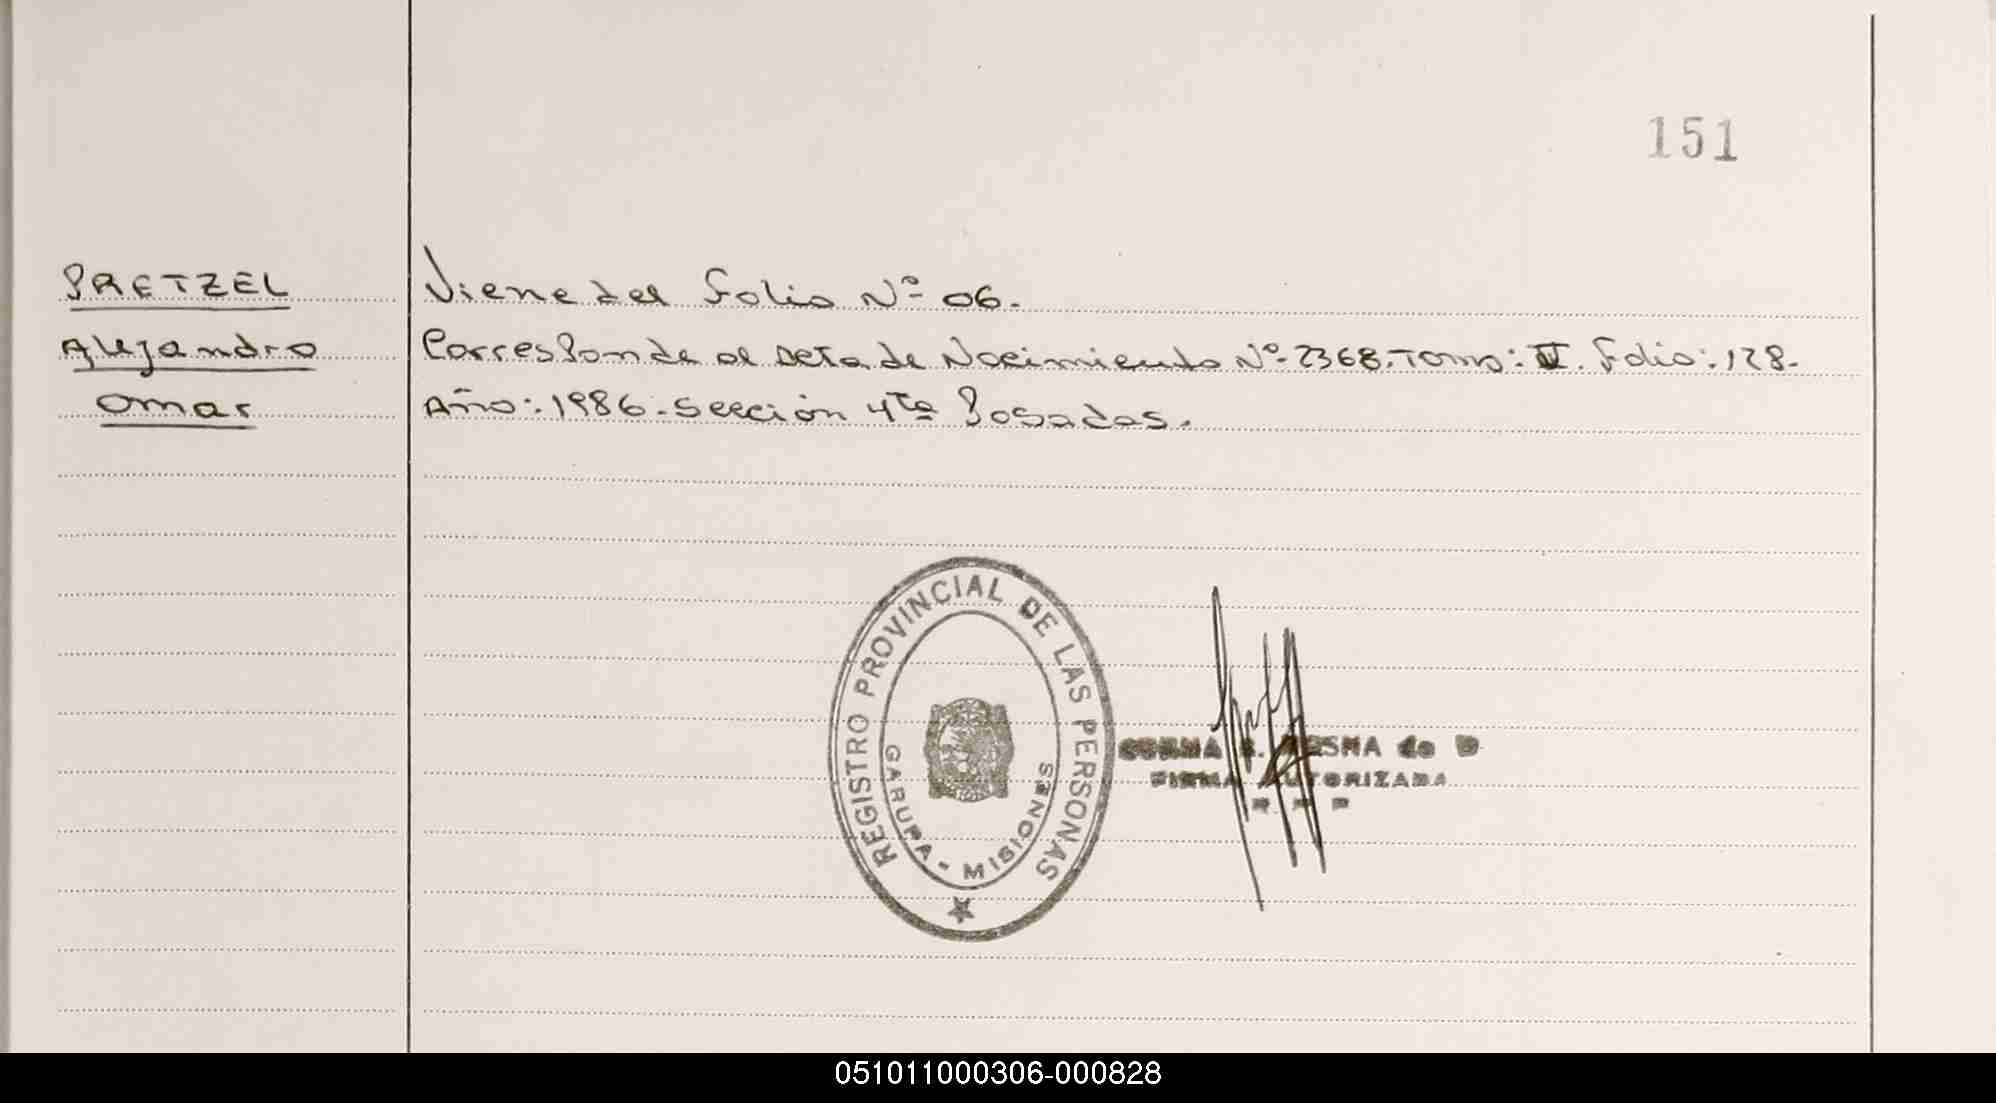 151
PRETZEL
Alejandro
Omar
Viene del Folio Nº 06.
Corresponde al Acta de Nacimiento Nº 2368. Tomo: V. Folio: 128.
Año: 1986. Sección 4ta Posadas.
REGISTRO PROVINCIAL DE LAS PERSONAS
GARUPA - MISIONES
de
FIRMA AUTORIZADA
051011000306-000828